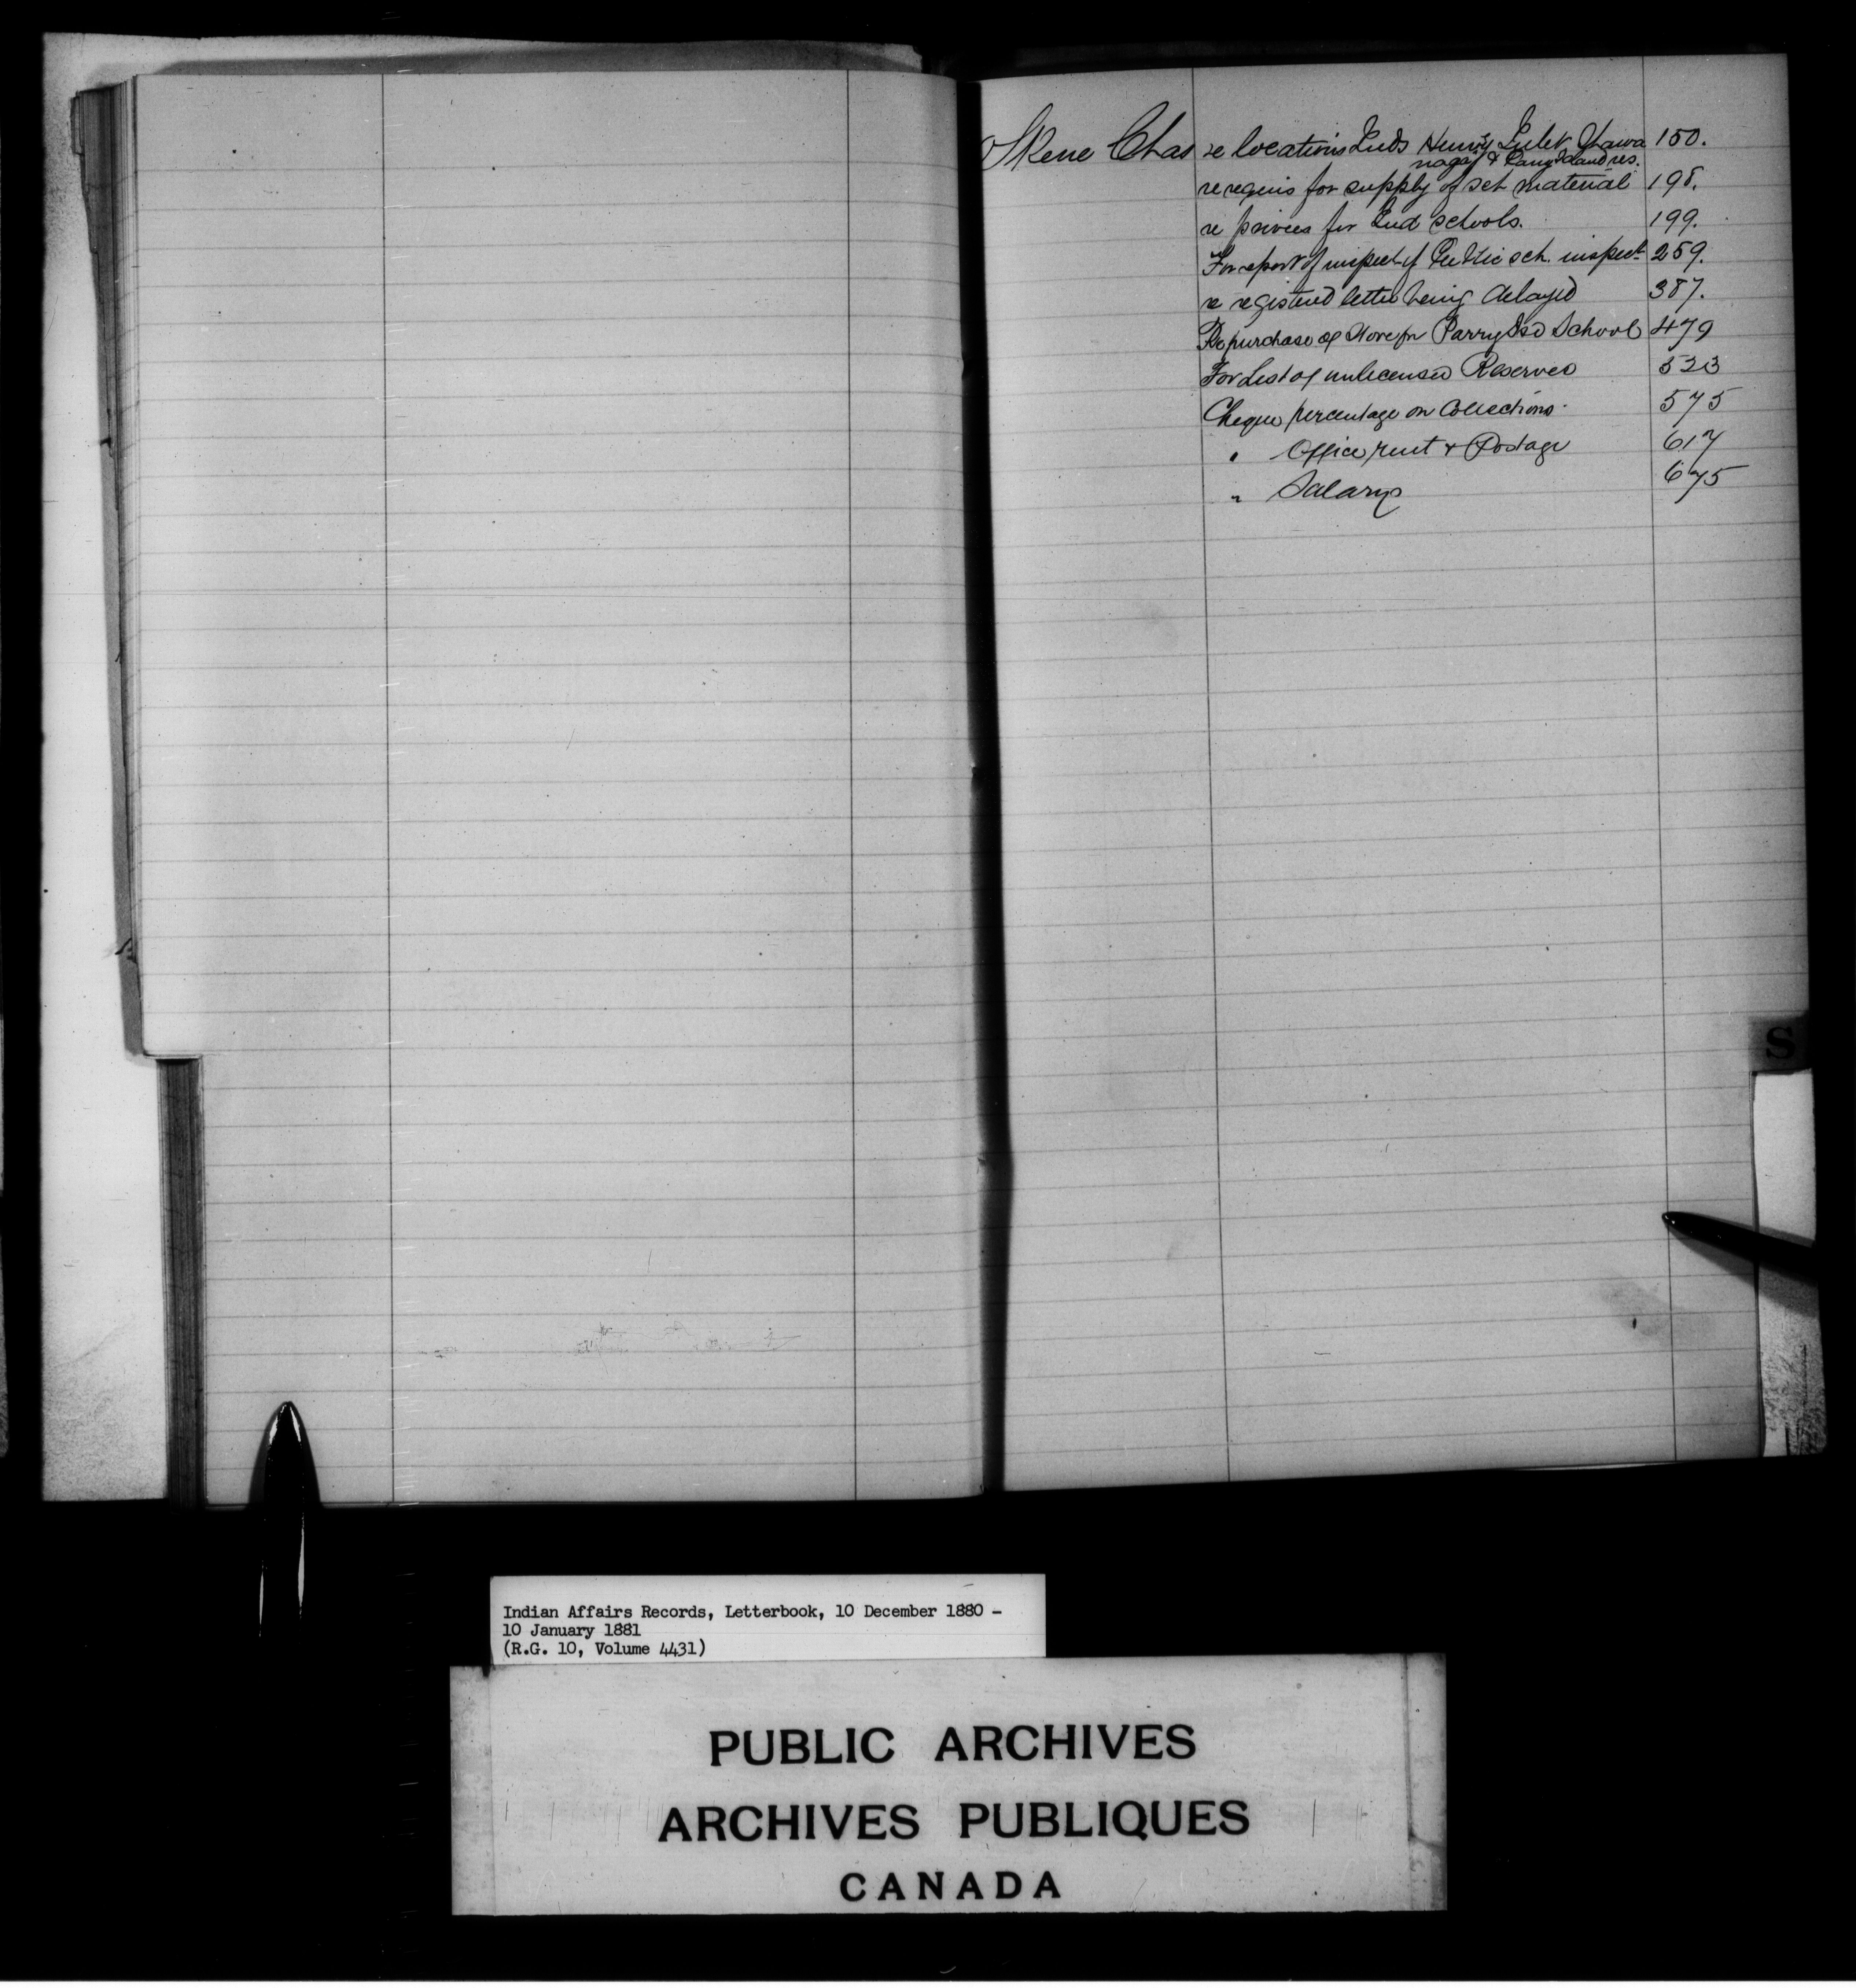 Skene Chas re locations Inds Henvy Inlet, Shawa 150.
naga & Parry Island res.
re requis for supply of sch material 198.
re prices for Ind schools. 199.
For report of inspect of Public sch. inspect 259.
re registered letter being delayed 387.
Re purchase of Stove for Parry Isd School 479
For List of unlicensed Reserves 523
Cheque percentage on Collections. 575
" Office rent & Postage 617
" Salary 675
S
Indian Affairs Records, Letterbook, 10 December 1880 -
10 January 1881
(R.G. 10, Volume 4431)
PUBLIC ARCHIVES
ARCHIVES PUBLIQUES
CANADA